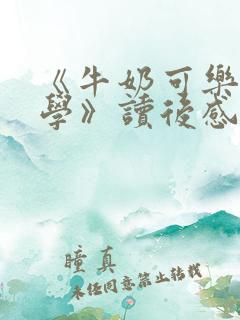 《牛奶可樂
學》讀後感
瞳真
未任同意禁止转载